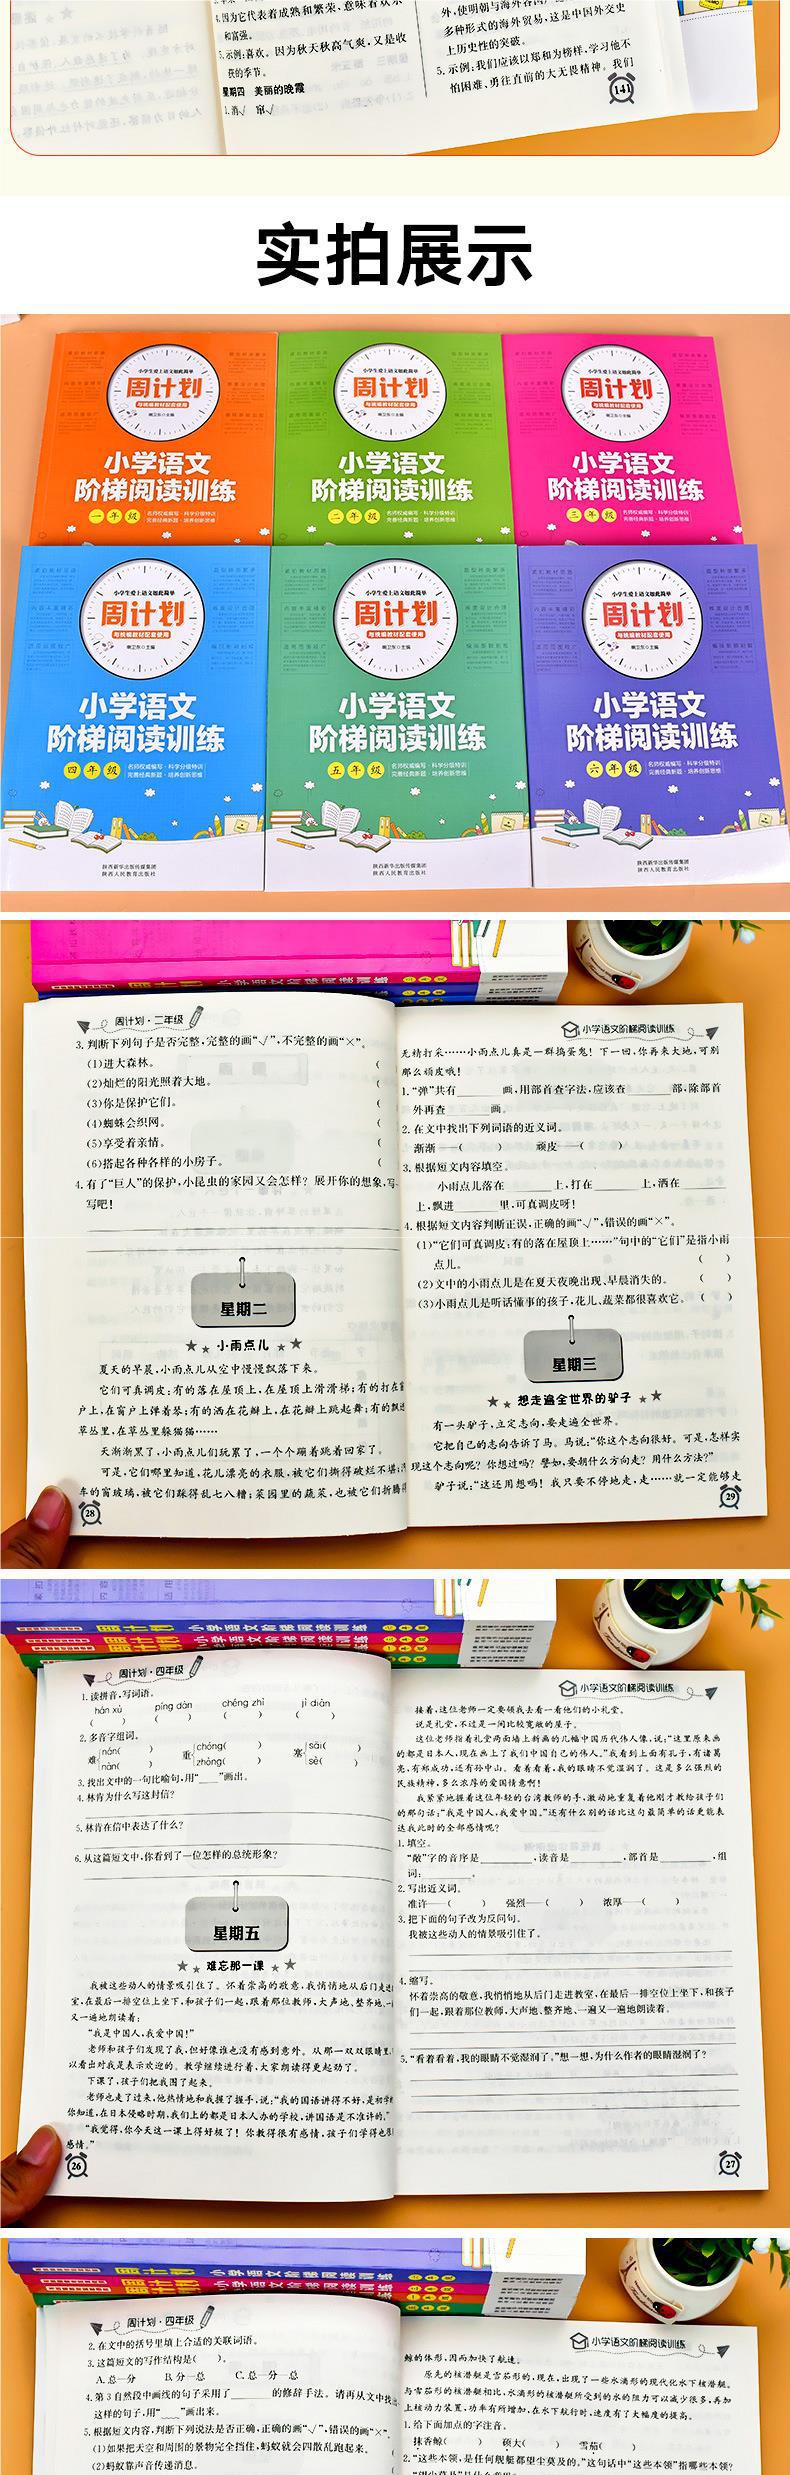 4.因为它代表着成熟和繁荣,意味着欢乐
和富强。
5.示例:喜欢。因为秋天秋高气爽,又是收
获的季节。
星期四 美丽的晚霞
1.消√ 帘√
多种形式的海外贸易,这是中国外交史
上历史性的突破。
5.示例:我们应该以郑和为榜样,学习他不
怕困难、勇往直前的大无畏精神。我们
141
实拍展示
小学生爱上语文如此简单
周计划
与统编教材配套使用
小学语文
阶梯阅读训练
一年级
名师权威编写·科学分级特训
完善经典新题·培养创新思维
小学生爱上语文如此简单
周计划
与统编教材配套使用
小学语文
阶梯阅读训练
二年级
名师权威编写·科学分级特训
完善经典新题·培养创新思维
小学生爱上语文如此简单
周计划
与统编教材配套使用
小学语文
阶梯阅读训练
三年级
名师权威编写·科学分级特训
完善经典新题·培养创新思维
小学生爱上语文如此简单
周计划
与统编教材配套使用
小学语文
阶梯阅读训练
四年级
名师权威编写·科学分级特训
完善经典新题·培养创新思维
陕西新华出版传媒集团
陕西人民教育出版社
小学生爱上语文如此简单
周计划
与统编教材配套使用
小学语文
阶梯阅读训练
五年级
名师权威编写·科学分级特训
完善经典新题·培养创新思维
陕西新华出版传媒集团
陕西人民教育出版社
小学生爱上语文如此简单
周计划
与统编教材配套使用
小学语文
阶梯阅读训练
六年级
名师权威编写·科学分级特训
完善经典新题·培养创新思维
陕西新华出版传媒集团
陕西人民教育出版社
周计划 小学语文阶梯阅读训练
周计划·二年级
3.判断下列句子是否完整,完整的画“√”,不完整的画“×”。
(1)进大森林。 (
(2)灿烂的阳光照着大地。 (
(3)你是保护它们。 (
(4)蜘蛛会织网。 (
(5)享受着亲情。 (
(6)搭起各种各样的小房子。 (
4.有了“巨人”的保护,小昆虫的家园又会怎样?展开你的想象,写一
写吧!
星期二
小雨点儿
夏天的早晨,小雨点儿从空中慢慢飘落下来。
它们可真调皮:有的落在屋顶上,在屋顶上滑滑梯;有的打在窗
户上,在窗户上弹着琴;有的洒在花瓣上,在花瓣上跳起舞;有的飘进
草丛里,在草丛里躲猫猫……
天渐渐黑了,小雨点儿们玩累了,一个个蹦着跳着回家了。
可是,它们哪里知道,花儿漂亮的衣服,被它们撕得破烂不堪;汽
车的窗玻璃,被它们踩得乱七八糟;菜园里的蔬菜,也被它们折腾得
28
小学语文阶梯阅读训练
无精打采……小雨点儿真是一群捣蛋鬼!下一回,你再来大地,可别
那么顽皮哦!
1.“弹”共有____画,用部首查字法,应该查____部,除部首
外再查____画。
2.在文中找出下列词语的近义词。
渐渐——( ) 顽皮——( )
3.根据短文内容填空。
小雨点儿落在____上,打在____上,洒在____
上,飘进____里,可真调皮呀!
4.根据短文内容判断正误,正确的画“√”,错误的画“×”。
(1)“它们可真调皮:有的落在屋顶上……”句中的“它们”是指小雨
点儿。 ( )
(2)文中的小雨点儿是在夏天夜晚出现、早晨消失的。 ( )
(3)小雨点儿是听话懂事的孩子,花儿、蔬菜都很喜欢它。 ( )
星期三
想走遍全世界的驴子
有一头驴子,立定志向,要走遍全世界。
它把自己的志向告诉了马。马说:“你这个志向很好。可是,怎样实
现这个志向呢?你想过吗?譬如,要朝什么方向走?用什么方法?”
驴子说:“这还用想吗!我只要不停地走,走……就一定能够走
29
周计划 小学语文阶梯阅读训练
周计划·四年级
1.读拼音,写词语。
hán xù píng dàn chéng zhì jì diàn
( ) ( ) ( ) ( )
2.多音字组词。
难 nán( ) nàn( ) 重 chóng( ) zhòng( ) 塞 sāi( ) sè( )
3.找出文中的一句比喻句,用“____”画出。
4.林肯为什么写这封信?
5.林肯在信中表达了什么?
6.从这篇短文中,你看到了一位怎样的总统形象?
星期五
难忘那一课
我被这些动人的情景吸引住了。怀着崇高的敬意,我悄悄地从后门走进教
室,在最后一排空位上坐下,和孩子们一起,跟着那位教师,大声地、整齐地、一遍
又一遍地朗读着:
“我是中国人,我爱中国!”
老师和孩子们发现了我,但好像谁也没有感到意外。从那一双双眼睛里,
以看出对我是表示欢迎的。教学继续进行着,大家朗读得更起劲了。
下课了,孩子们把我围了起来。
老师也走了过来,他热情地和我握了握手,说:“我的国语讲得不好,是初学的
你知道,在日本侵略时期,我们上的都是日本人办的学校,讲国语是不准许的。”
“我觉得,你今天这一课上得好极了!你教得很有感情,孩子们学得也很
感情。”
26
小学语文阶梯阅读训练
接着,这位老师一定要领我去看一看他们的小礼堂。
说是礼堂,不过是一间比较宽敞的屋子。
这位老师指着礼堂两面墙上新画的几幅中国历代伟人像,说:“这里原来画
的都是日本人,现在画上了我们中国自己的伟人。”我看到上面有孔子,有诸葛
亮,有郑成功,还有孙中山。看着看着,我的眼睛不觉湿润了。这是多么强烈的
民族精神,多么浓厚的爱国情意啊!
我紧紧地握着这位年轻的台湾教师的手,激动地重复着他刚才教给孩子们
的那句话:“我是中国人,我爱中国。”还有什么别的话比这句最简单的话更能表
达我此时的全部感情呢?
1.填空。
“敞”字的音序是____,读音是____,部首是____,组
词:____。
2.写出近义词。
准许——( ) 强烈——( ) 浓厚——( )
3.把下面的句子改为反问句。
我被这些动人的情景吸引住了。
4.缩写。
怀着崇高的敬意,我悄悄地从后门走进教室,在最后一排空位上坐下,和孩子
们一起,跟着那位教师,大声地、整齐地、一遍又一遍地朗读着。
5.“看着看着,我的眼睛不觉湿润了。”想一想,为什么作者的眼睛湿润了?
27
周计划 小学语文阶梯阅读训练
周计划·四年级
2.在文中的括号里填上合适的关联词语。
3.这篇短文的写作结构是( )。
A.总—分 B.分—总 C.总—分—总
4.第3自然段中画线的句子采用了____的修辞手法。请再从文中找出
这样的句子,用“____”画出来。
5.根据短文内容,判断下列说法是否正确,正确的画“√”,错误的画“×”。
(1)如果把天空和周围的景物完全挡住,蚂蚁就会四散乱跑起来。
(2)蚂蚁靠声音传递消息。
小学语文阶梯阅读训练
鲸的体形,因而加快了航速。
原先的核潜艇是雪茄形的,现在,出现了一些水滴形的现代化水下核潜艇。
与雪茄形的核潜艇相比,水滴形的核潜艇所受到的水的阻力可以减少很多,再加
上核动力装置,功率有所增加,在水下航行时,速度有了大幅度的提高。
1.给下面加点的字注音。
抹香鲸( ) 硕大( ) 雪茄( )
2.“这些本领,是任何舰艇都望尘莫及的。”这句话中“这些本领”指哪些本领?